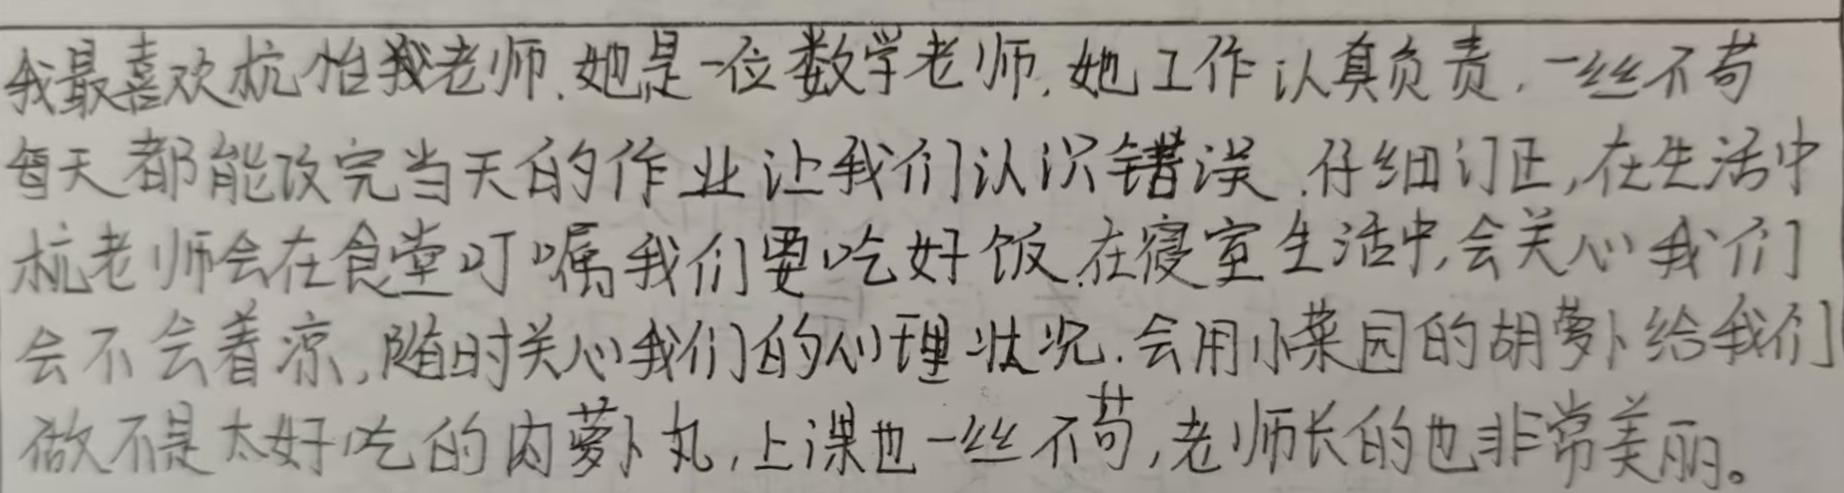 我最喜欢杭怡我老师.她是一位数学老师.她工作认真负责,一丝不苟
每天都能改完当天的作业让我们认识错误.仔细订正,在生活中
杭老师会在食堂叮嘱我们要吃好饭.在寝室生活中,会关心我们
会不会着凉,随时关心我们的心理状况.会用小菜园的胡萝卜给我们
做不是太好吃的肉萝卜丸,上课也一丝不苟,老师长的也非常美丽。